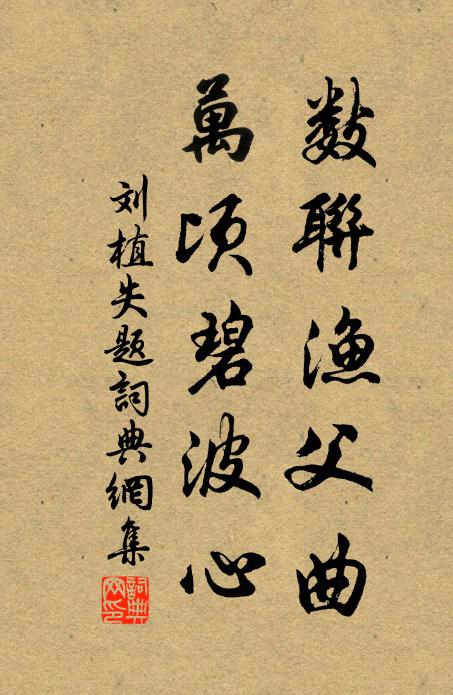 數聯漁父曲
萬頃碧波心
刘植失题詞典網集
詞典网印